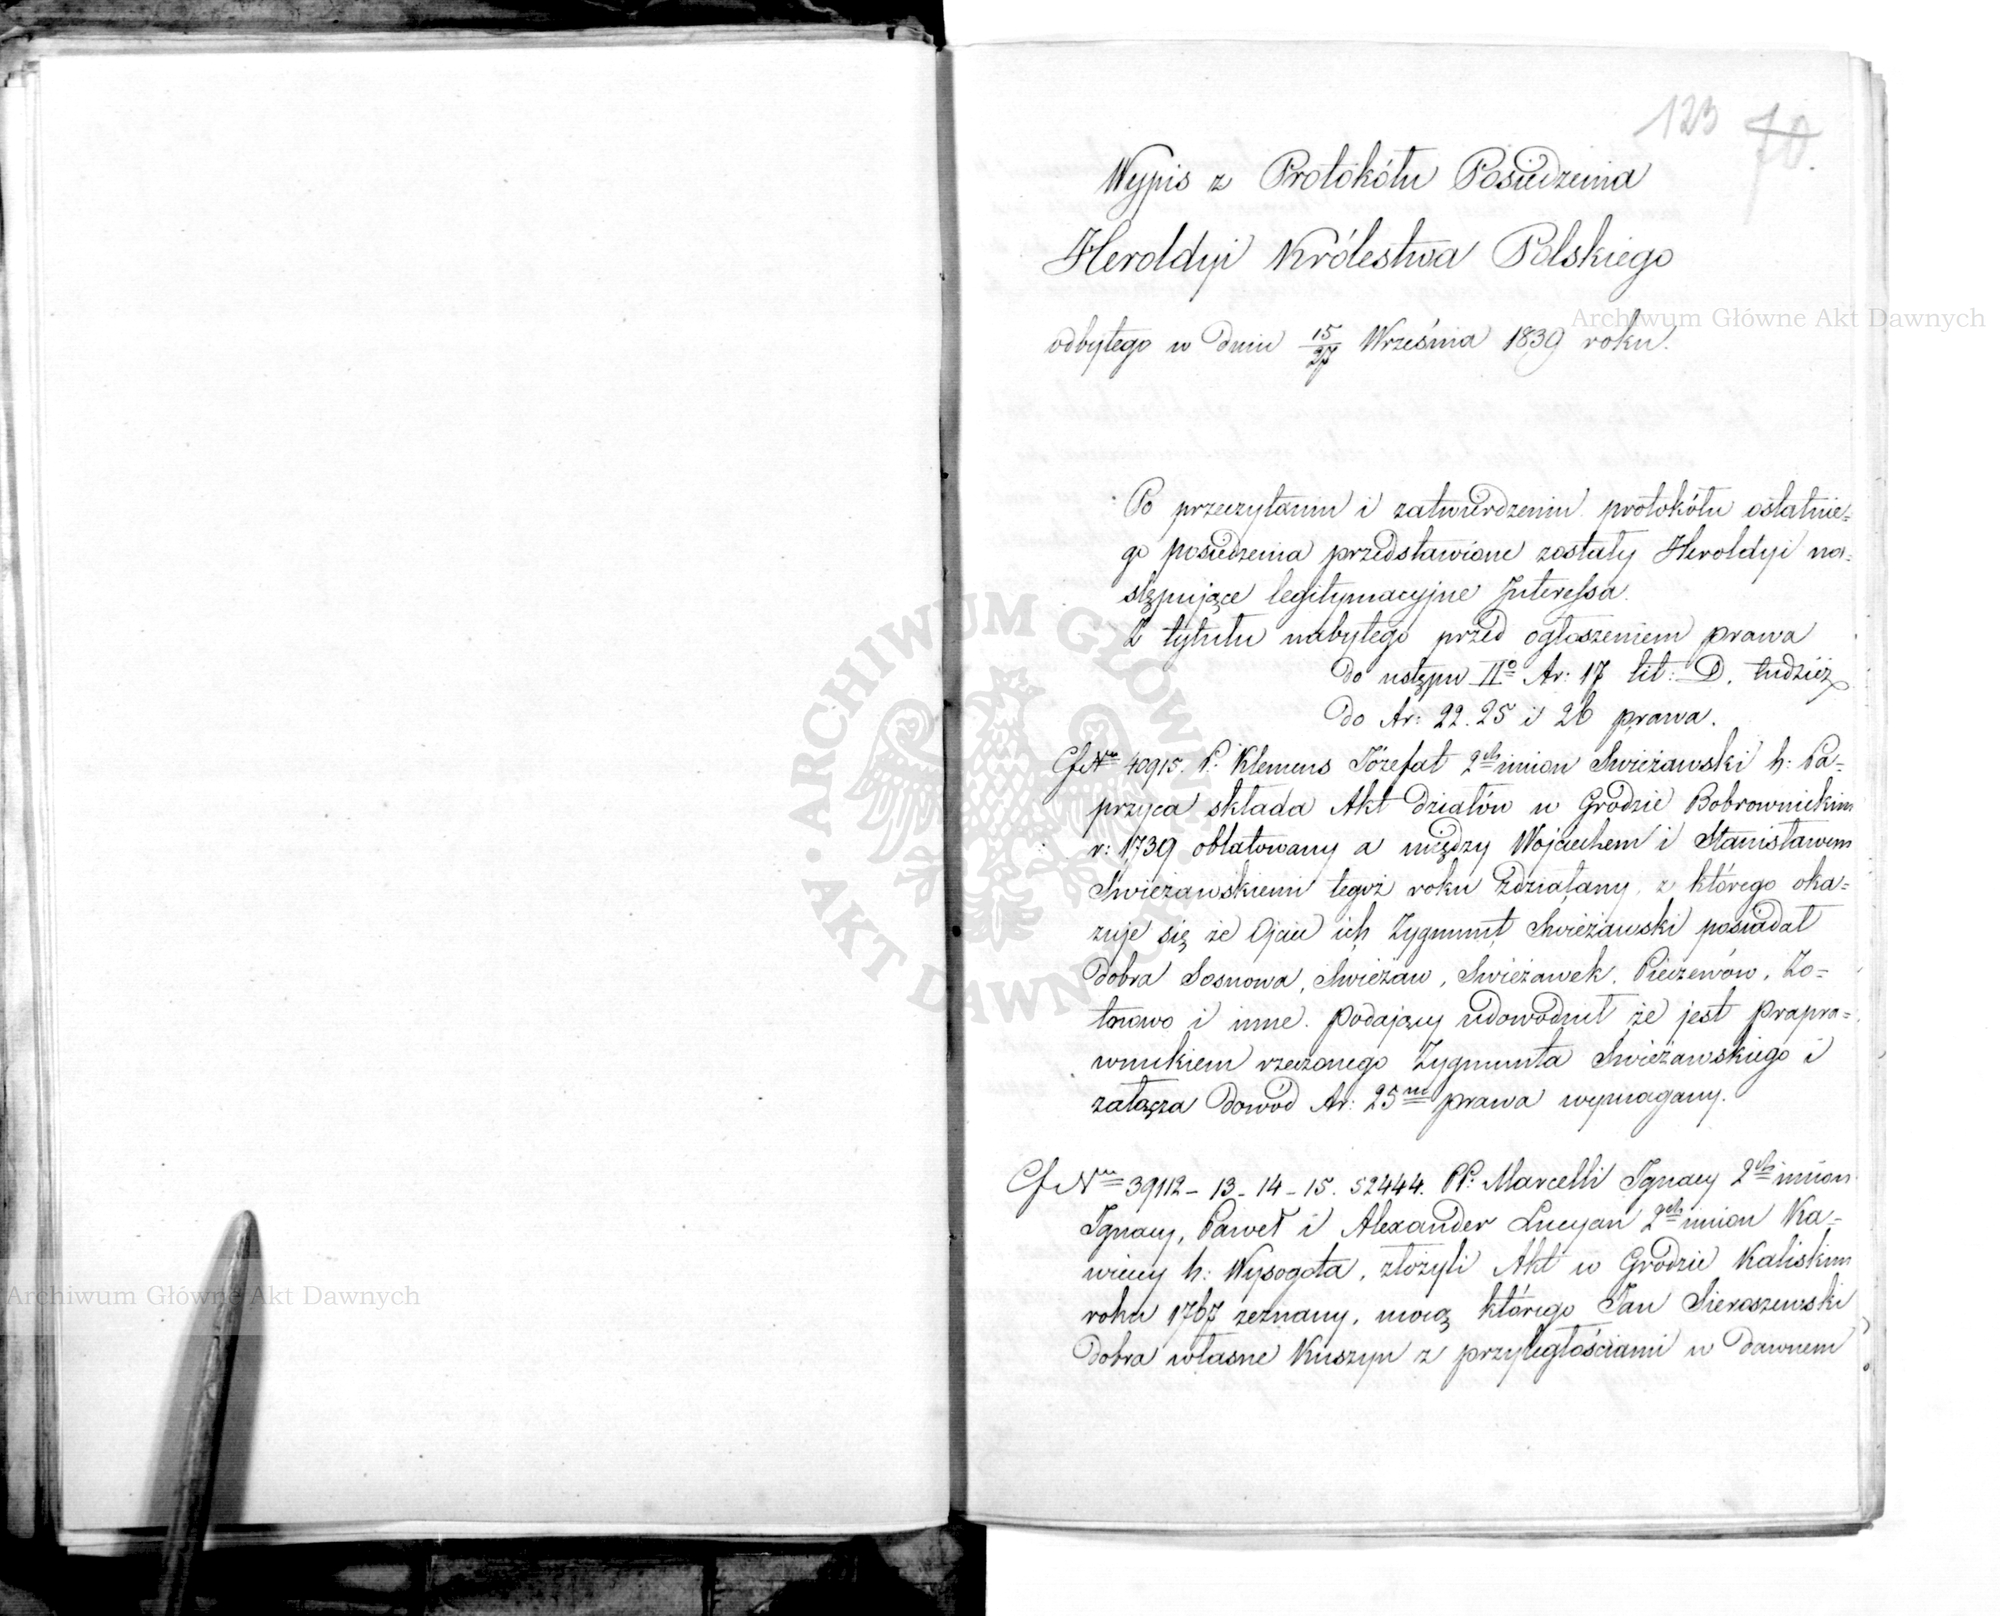 123 70.
Wypis z Protokółu Posiedzenia
Heroldyi Królestwa Polskiego
odbytego w dniu 15/27 Września 1839 roku.
Po przeczytaniu i zatwierdzeniu protokółu ostatnie=
go posiedzenia przedstawione zostały Heroldyi na=
stępujące legitymacyjne Interessa.
Z tytułu nabytego przed ogłoszeniem prawa
do ustępu IIo Ar: 17 lit: D. tudzież
do Ar: 22. 25 i 26 prawa.
40915. P. Klemens Józefat 2ch imion Swieżawski h: Pa=
przyca składa Akt działów w Grodzie Bobrownickim
r: 1739 oblatowany a między Wojciechem i Stanisławem
Swieżawskiemi tegoż roku zdziałany, z którego oka=
zuje się że Ojciec ich Zygmunt Swieżawski posiadał
dobra Sosnowa, Swieżaw, Swieżawek, Pieczewów, Zo=
tnowo i inne. Podający udowodnił że jest Prapra=
wnukiem rzeczonego Zygmunta Swieżawskiego i
załącza dowód Ar: 25m prawa wymagany.
39112 - 13 - 14 - 15. 52444. PP. Marcelli Ignacy 2ch imion
Ignacy, Paweł i Alexander Lucyan 2ch imion Ka=
wieccy h: Wysogota, złożyli Akt w Grodzie Kaliskim
roku 1767 zeznany, mocą którego Jan Sieroszewski
dobra własne Kuszyn z przyległościami w dawnem
Archiwum Główne Akt Dawnych
Archiwum Główne Akt Dawnych
ARCHIWUM GŁÓWNE AKT DAWNYCH